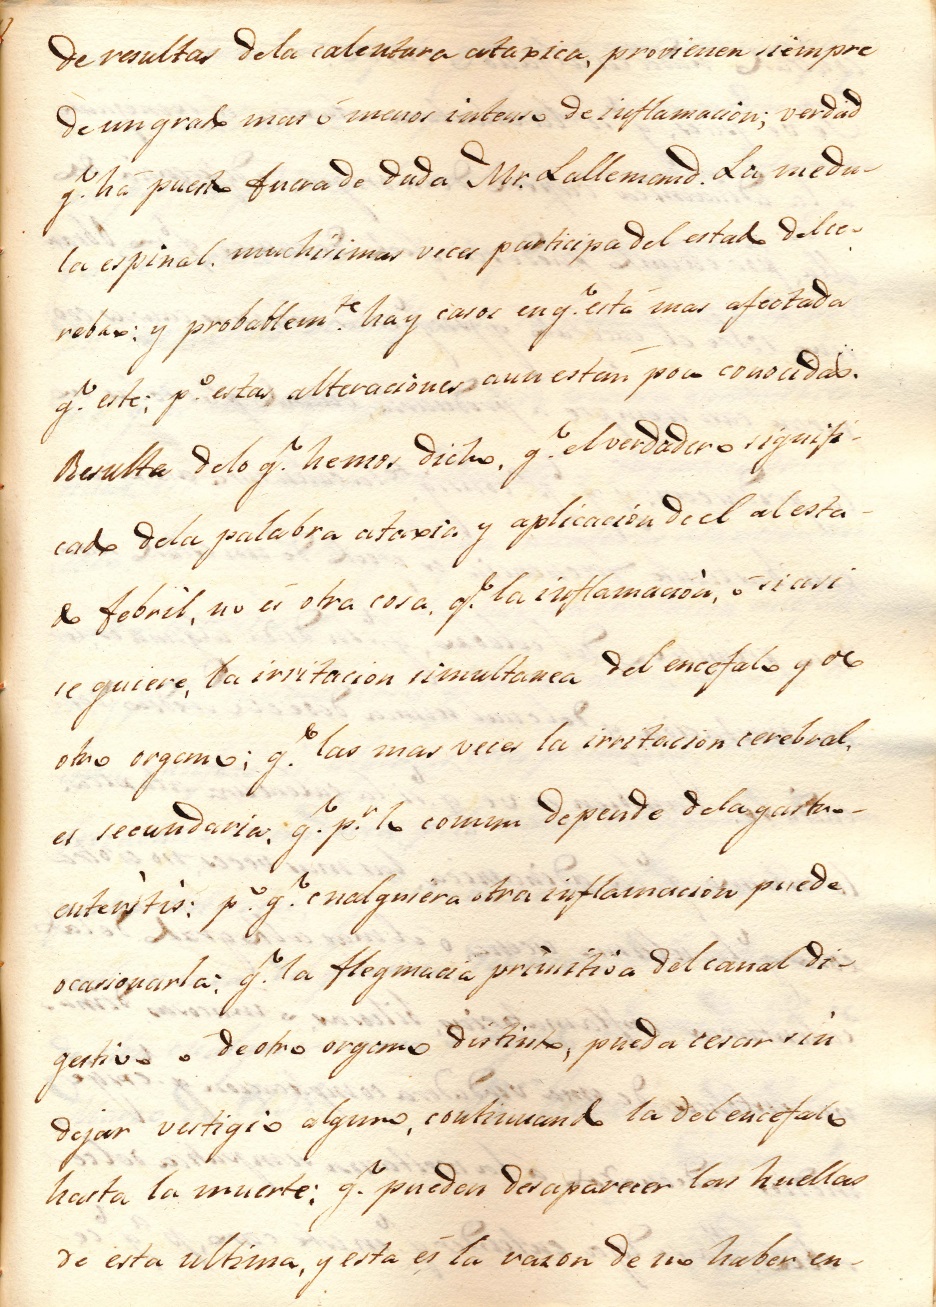 de resultas dela calentura ataxica, provienen siempre
de un grado mas ó menos intenso de inflamación; verdad
q.e há puesto fuera de duda Mr. Lallemand. La medu-
la espinal. muchisimas veces participa del estado del ce-
rebro: y probablem.te hay casos en q.e está mas afectada
q.e este; p.o estas alteraciones aun están poco conocidas.
Resulta delo q.e hemos dicho, q.e el verdadero signifi-
cado dela palabra ataxia y aplicación de el al esta-
do febril, no és otra cosa, q.e la inflamación, ó si asi
se quiere, la irritacion simultanea del encefalo y de
otro organo; q.e las mas veces la irritacion cerebral,
es secundaria, q.e p.r lo comun depende dela gastro-
enteritis: p.o q.e cualquiera otra inflamacion puede
ocasionarla; q.e la flegmacia primitiva del canal di-
gestivo o de otro organo distinto, pueda cesar sin
dejar vestigio alguno, continuando la del encefalo
hasta la muerte; q.e pueden desaparecer las huellas
de esta ultima, y esta és la razon de no haber en-